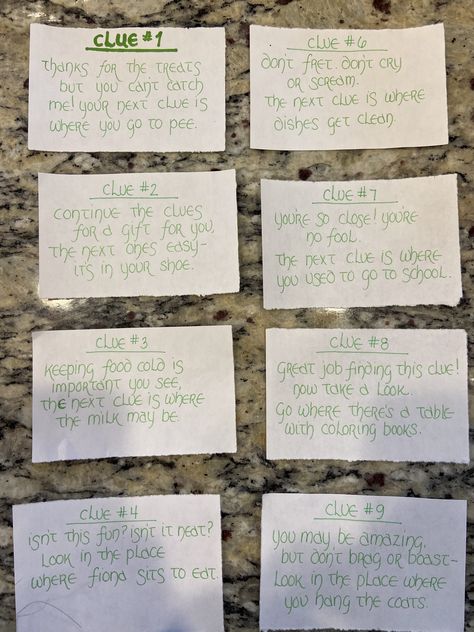 CLUE #1
Thanks for the treats
but you can't catch
me! your next clue is
where you go to pee.
CLUE #2
continue the clues
for a gift for you,
the next ones easy-
its in your shoe.
CLUE #3
Keeping food cold is
important you see,
the next clue is where
the milk may be.
CLUE #4
isn't this fun? isn't it neat?
Look in the place
where fiona sits to eat.
CLUE #6
don't fret. don't cry
or scream.
The next clue is where
dishes get clean.
CLUE #7
you're so close! you're
no fool.
The next clue is where
you used to go to school.
CLUE #8
Great job finding this clue!
now take a look.
Go where there's a table
with coloring books.
CLUE #9
you may be amazing,
but don't brag or boast-
Look in the place where
you hang the coats.